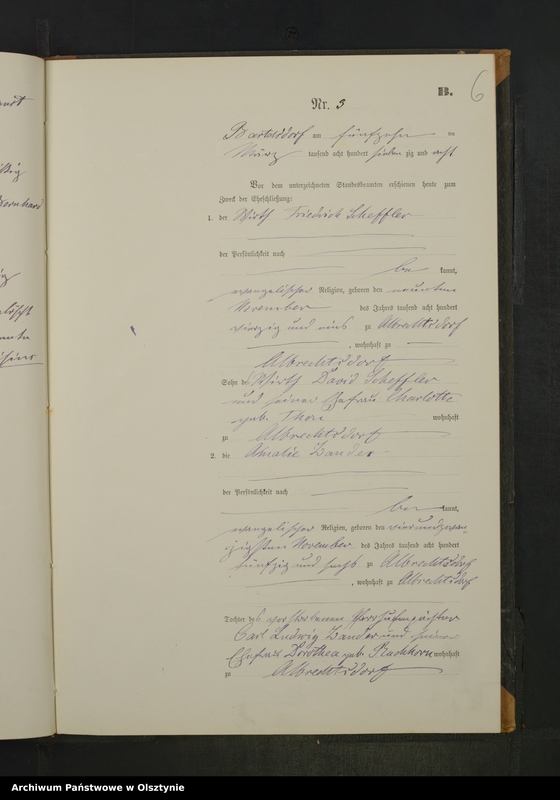 B.
6
Nr. 3
Bartelsdorf am fünfzehn ten
März tausend acht hundert siebenzig und acht
Vor dem unterzeichneten Standesbeamten erschienen heute zum
Zweck der Eheschließung:
1. der Wirth Friedrich Scheffler
der Persönlichkeit nach
be kannt,
evangelischer Religion, geboren den neunten
November des Jahres tausend acht hundert
vierzig und eins zu Albrechtsdorf
, wohnhaft zu
Albrechtsdorf
Sohn des Wirth David Scheffler
und seiner Ehefrau Charlotte
geb. wohnhaft
zu Albrechtsdorf
2. die Amalie Zander
der Persönlichkeit nach
be kannt,
evangelischer Religion, geboren den vierundzwan-
zigsten November des Jahres tausend acht hundert
fünfzig und sechs zu Albrechtsdorf
, wohnhaft zu Albrechtsdorf
Tochter des verstorbenen
Carl Ludwig Zander und seiner
Ehefrau Dorothea geb. wohnhaft
zu Albrechtsdorf
Archiwum Państwowe w Olsztynie